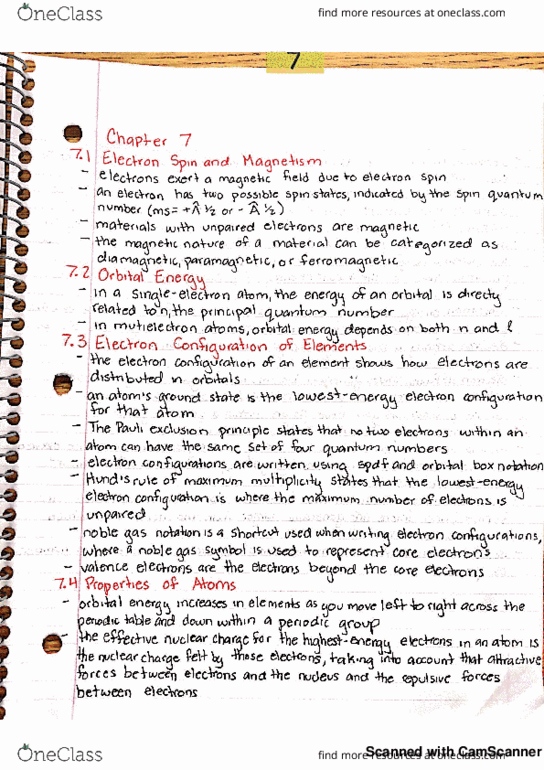 OneClass
find more resources at oneclass.com
7
Chapter 7
7.1 Electron Spin and Magnetism
- electrons exert a magnetic field due to electron spin
- an electron has two possible spin states, indicated by the spin quantum
number (ms= +Â ½ or - Â ½)
- materials with unpaired electrons are magnetic
- the magnetic nature of a material can be categorized as
diamagnetic, paramagnetic, or ferromagnetic
7.2 Orbital Energy
- in a single-electron atom, the energy of an orbital is directly
related to n, the principal quantum number
- in mutielectron atoms, orbital energy depends on both n and ℓ
7.3 Electron Configuration of Elements
- the electron configuration of an element shows how electrons are
distributed in orbitals
- an atom's ground state is the lowest-energy electron configuration
for that atom
- The Pauli exclusion principle states that no two electrons within an
atom can have the same set of four quantum numbers
- electron configurations are written using spdf and orbital box notation
- Hund's rule of maximum multiplicity states that the lowest-energy
electron configuration is where the maximum number of electrons is
unpaired
- noble gas notation is a shortcut used when writing electron configurations,
where a noble gas symbol is used to represent core electrons
- valence electrons are the electrons beyond the core electrons
7.4 Properties of Atoms
- orbital energy increases in elements as you move left to right across the
periodic table and down within a periodic group
- the effective nuclear charge for the highest-energy electrons in an atom is
the nuclear charge felt by those electrons, taking into account that attractive
forces between electrons and the nucleus and the repulsive forces
between electrons
OneClass
find more resources at oneclass.com
Scanned with CamScanner